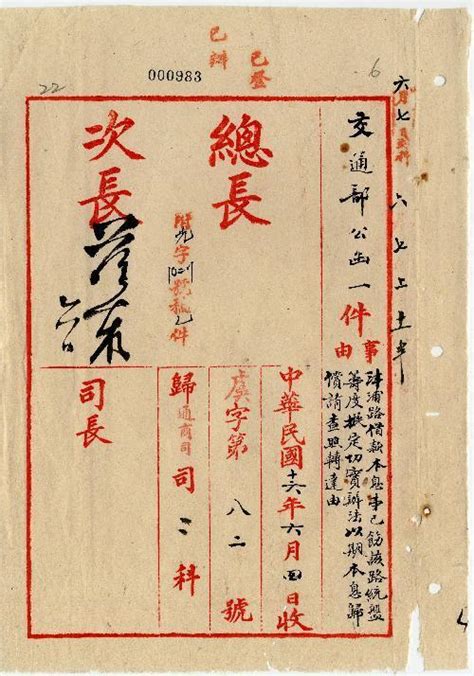 已登
已辦
000983
22
6
六月七
六 七 上 十一 半
交通部公函一件
事由
津浦路借款本息事已飭該路統盤
籌度擬定切實辦法以期本息歸
償請查照轉達由
總長
字號稿乙件
次長
中華民國十六年六月四日收
字第八二號
歸通商司司二科
司長